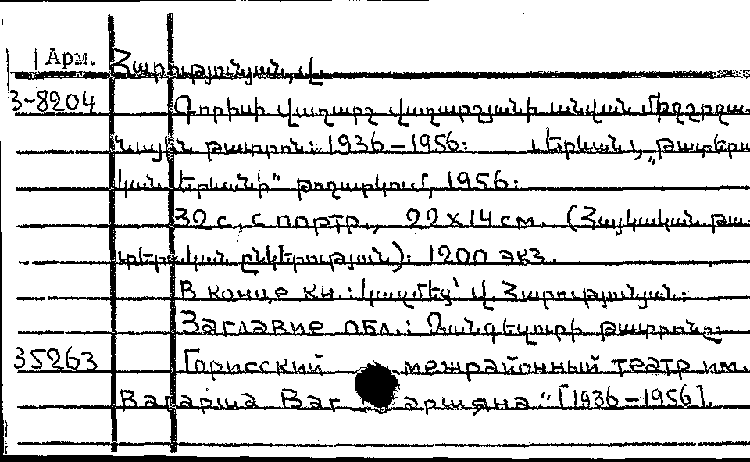 Арм. Հարությունյան, Վ.
3-8204 Գորիսի Վաղարշ Վաղարշյանի անվան միջշրջա-
նային թատրոն: 1936-1956: Երևան, „Թատերա-
կան Երևանի“ թողարկում, 1956:
32 с. с портр., 22x14 см. (Հայկական թա-
տերական ընկերություն): 1200 экз.
В конце кн.: կազմեց՝ Վ. Հարությունյան:
Заглавие обл.: Զանգեզուրի թատրոնը:
35263 Горисский межрайонный театр им.
Вагарша Ваг аршяна" [1936-1956].